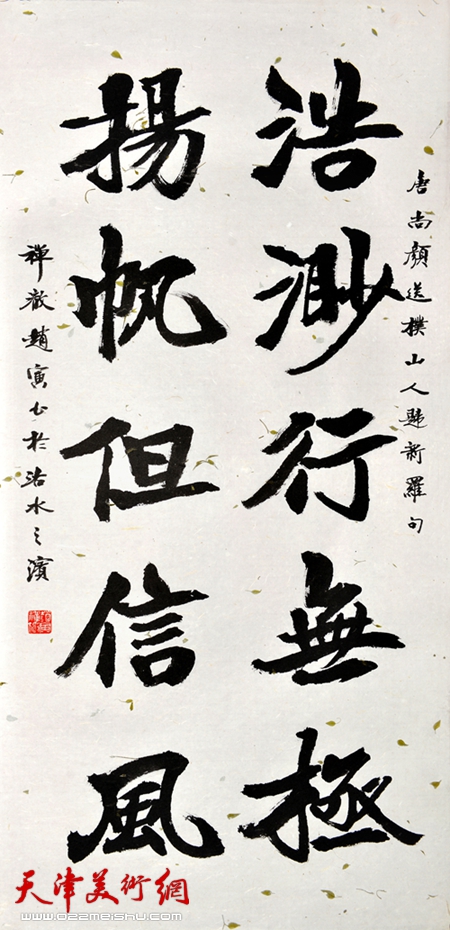 唐尚顔送樸山人歸新羅句
浩渺行無極
揚帆但信風
禪趙寅書於沽水之濱
天津美術網
www.022meishu.com